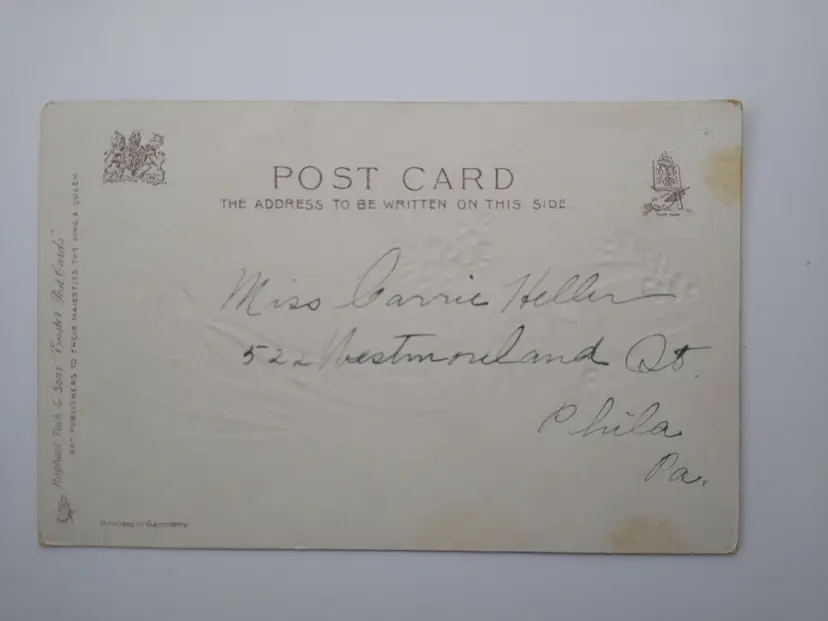 POST CARD
THE ADDRESS TO BE WRITTEN ON THIS SIDE.
Miss Carrie Heller
522 Westmoreland St.
Phila
Pa.
Raphael Tuck & Sons' "Easter Post Cards"
ART PUBLISHERS TO THEIR MAJESTIES THE KING & QUEEN
Printed in Germany
TRADE MARK